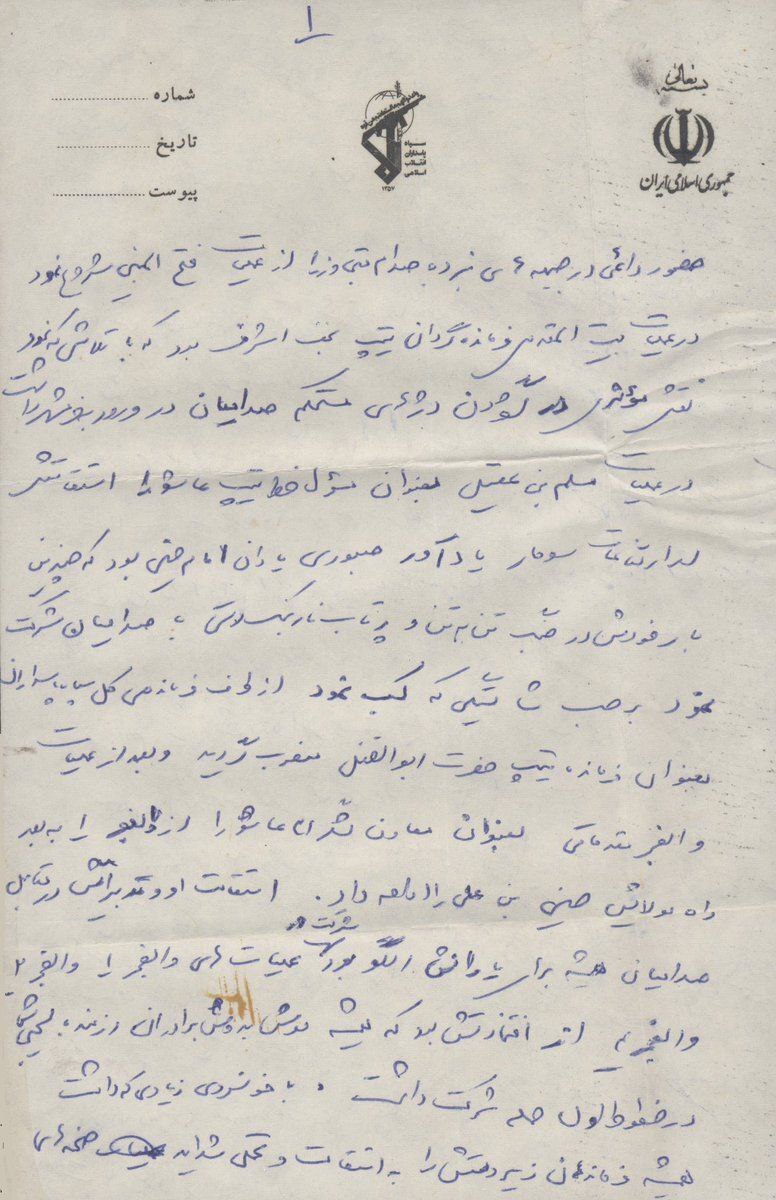 ۱
بسمه تعالی
جمهوری اسلامی ایران
سپاه پاسداران انقلاب اسلامی
۱۳۵۷
شماره
تاریخ
پیوست
حضور دائمی در جبهه های نبرد با صدام متجاوز را از عملیات فتح المبین شروع نمود
در عملیات بیت المقدس فرمانده گردان تیپ نجف اشرف بود که با تلاشی که نمود
نقش مؤثری در گشودن دژهای مستحکم صدامیان در ورود بخرمشهر داشت
در عملیات مسلم بن عقیل بعنوان مسئول خط تیپ عاشورا استقامتش
در ارتفاعات سومار یادآور صبوری یاران امام حسین بود که چندین
بار خودش در جنگ تن به تن و پرتاب نارنجک دستی با صدامیان شرکت
نمود بر حسب شایستگی که کسب نمود از طرف فرماندهی کل سپاه پاسداران
بعنوان فرمانده تیپ حضرت ابوالفضل منصوب گردید و بعد از عملیات
والفجر مقدماتی بعنوان معاون لشگر عاشورا از والفجر ۱ به بعد
راه مولایش حسین بن علی را ادامه داد. استقامت او و تدبیراتش در مقابل
صدامیان همیشه برای یارانش الگو بود شرکت در عملیات های والفجر ۱ والفجر ۲
والفجر ۴ از افتخاراتش بود که همیشه دوش بدوش برادران رزمنده بسیجی
در خطوط اول حمله شرکت داشت. با خونسردی زیادی که داشت
همیشه فرماندهان زیر دستش را به استقامت و تحمل شداید صحنه های